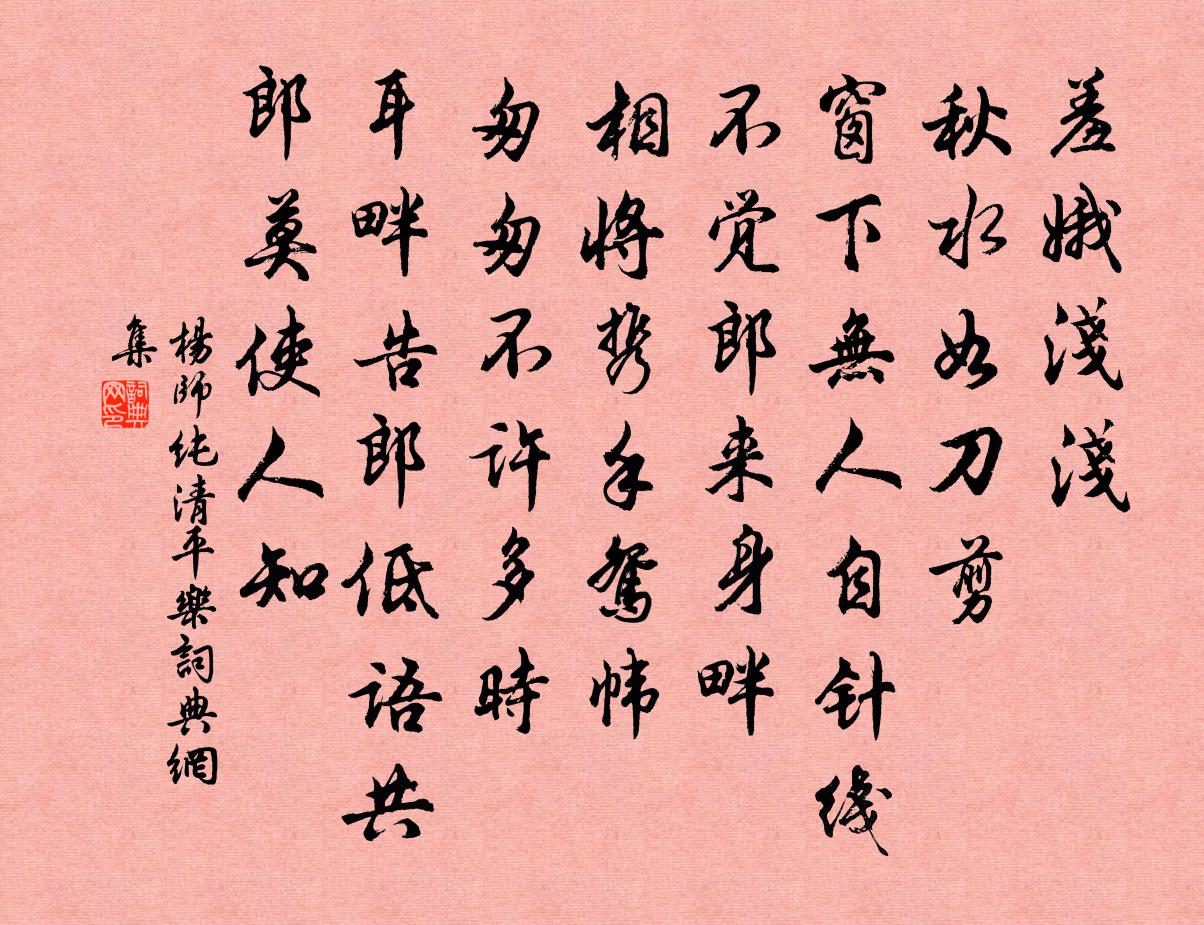 羞娥淺淺
秋水如刀剪
窗下無人自针线
不觉郎来身畔
相将携手鸳帏
匆匆不许多時
耳畔告郎低语共
郎莫使人知
楊師纯清平樂詞典網
集
詞典
网印